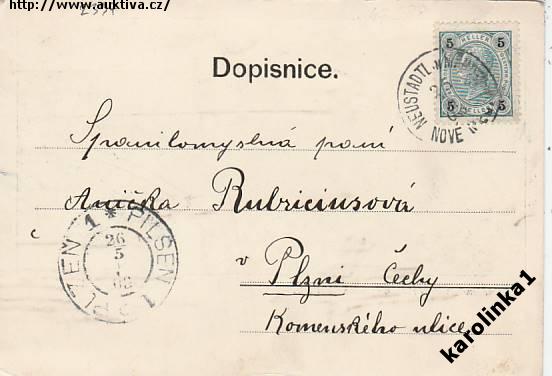 http://www.auktiva.cz/
Dopisnice.
5 HELLER 5
5 5
NEUSTADTL
NOVÉ
Spanilomyslná paní
Anička Rubriciusová
v Plzni Čechy
Komenského ulice
PLZEŇ 1 * PILSEN 1
26
5
karolinka1